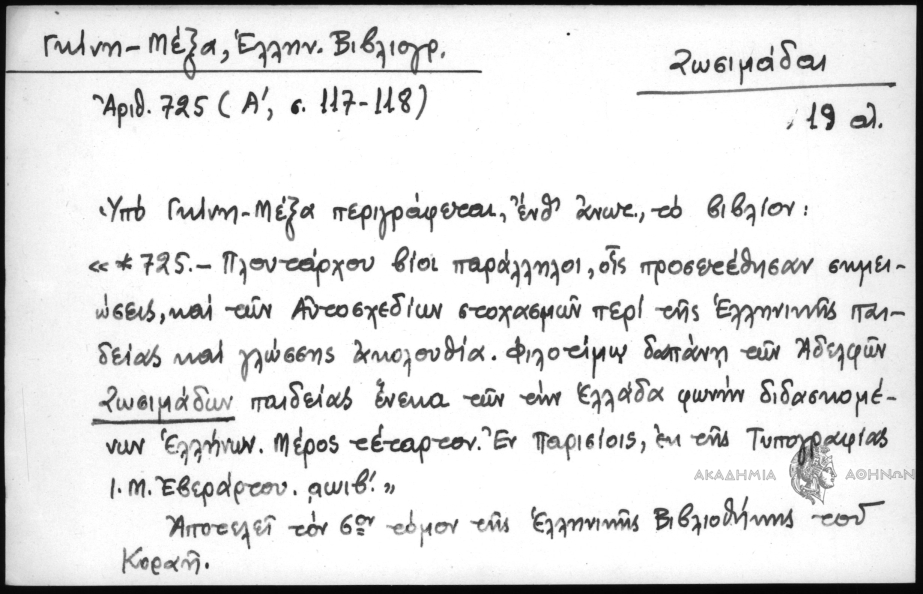 Γκίνη-Μέξα, Ἑλλην. Βιβλιογρ.
Ζωσιμάδαι
Ἀριθ. 725 (Α΄, σ. 117-118)
19 αἰ.
Ὑπὸ Γκίνη-Μέξα περιγράφεται, ἔνθ' ἄνωτ., τὸ βιβλίον:
«*725.- Πλουτάρχου βίοι παράλληλοι, οἷς προσετέθησαν σημει-
ώσεις, καὶ τῶν Αὐτοσχεδίων στοχασμῶν περὶ τῆς Ἑλληνικῆς παι-
δείας καὶ γλώσσης ἀκολουθία. Φιλοτίμῳ δαπάνῃ τῶν Ἀδελφῶν
Ζωσιμάδων παιδείας ἕνεκα τῶν τὴν Ἑλλάδα φωνὴν διδασκομέ-
νων Ἑλλήνων. Μέρος τέταρτον. Ἐν Παρισίοις, ἐκ τῆς Τυπογραφίας
Ι. Μ. Ἐβεράρτου. ͵αωιβ΄.»
Ἀποτελεῖ τὸν 6ον τόμον τῆς Ἑλληνικῆς Βιβλιοθήκης τοῦ
Κοραῆ.
ΑΚΑΔΗΜΙΑ ΑΘΗΝΩΝ